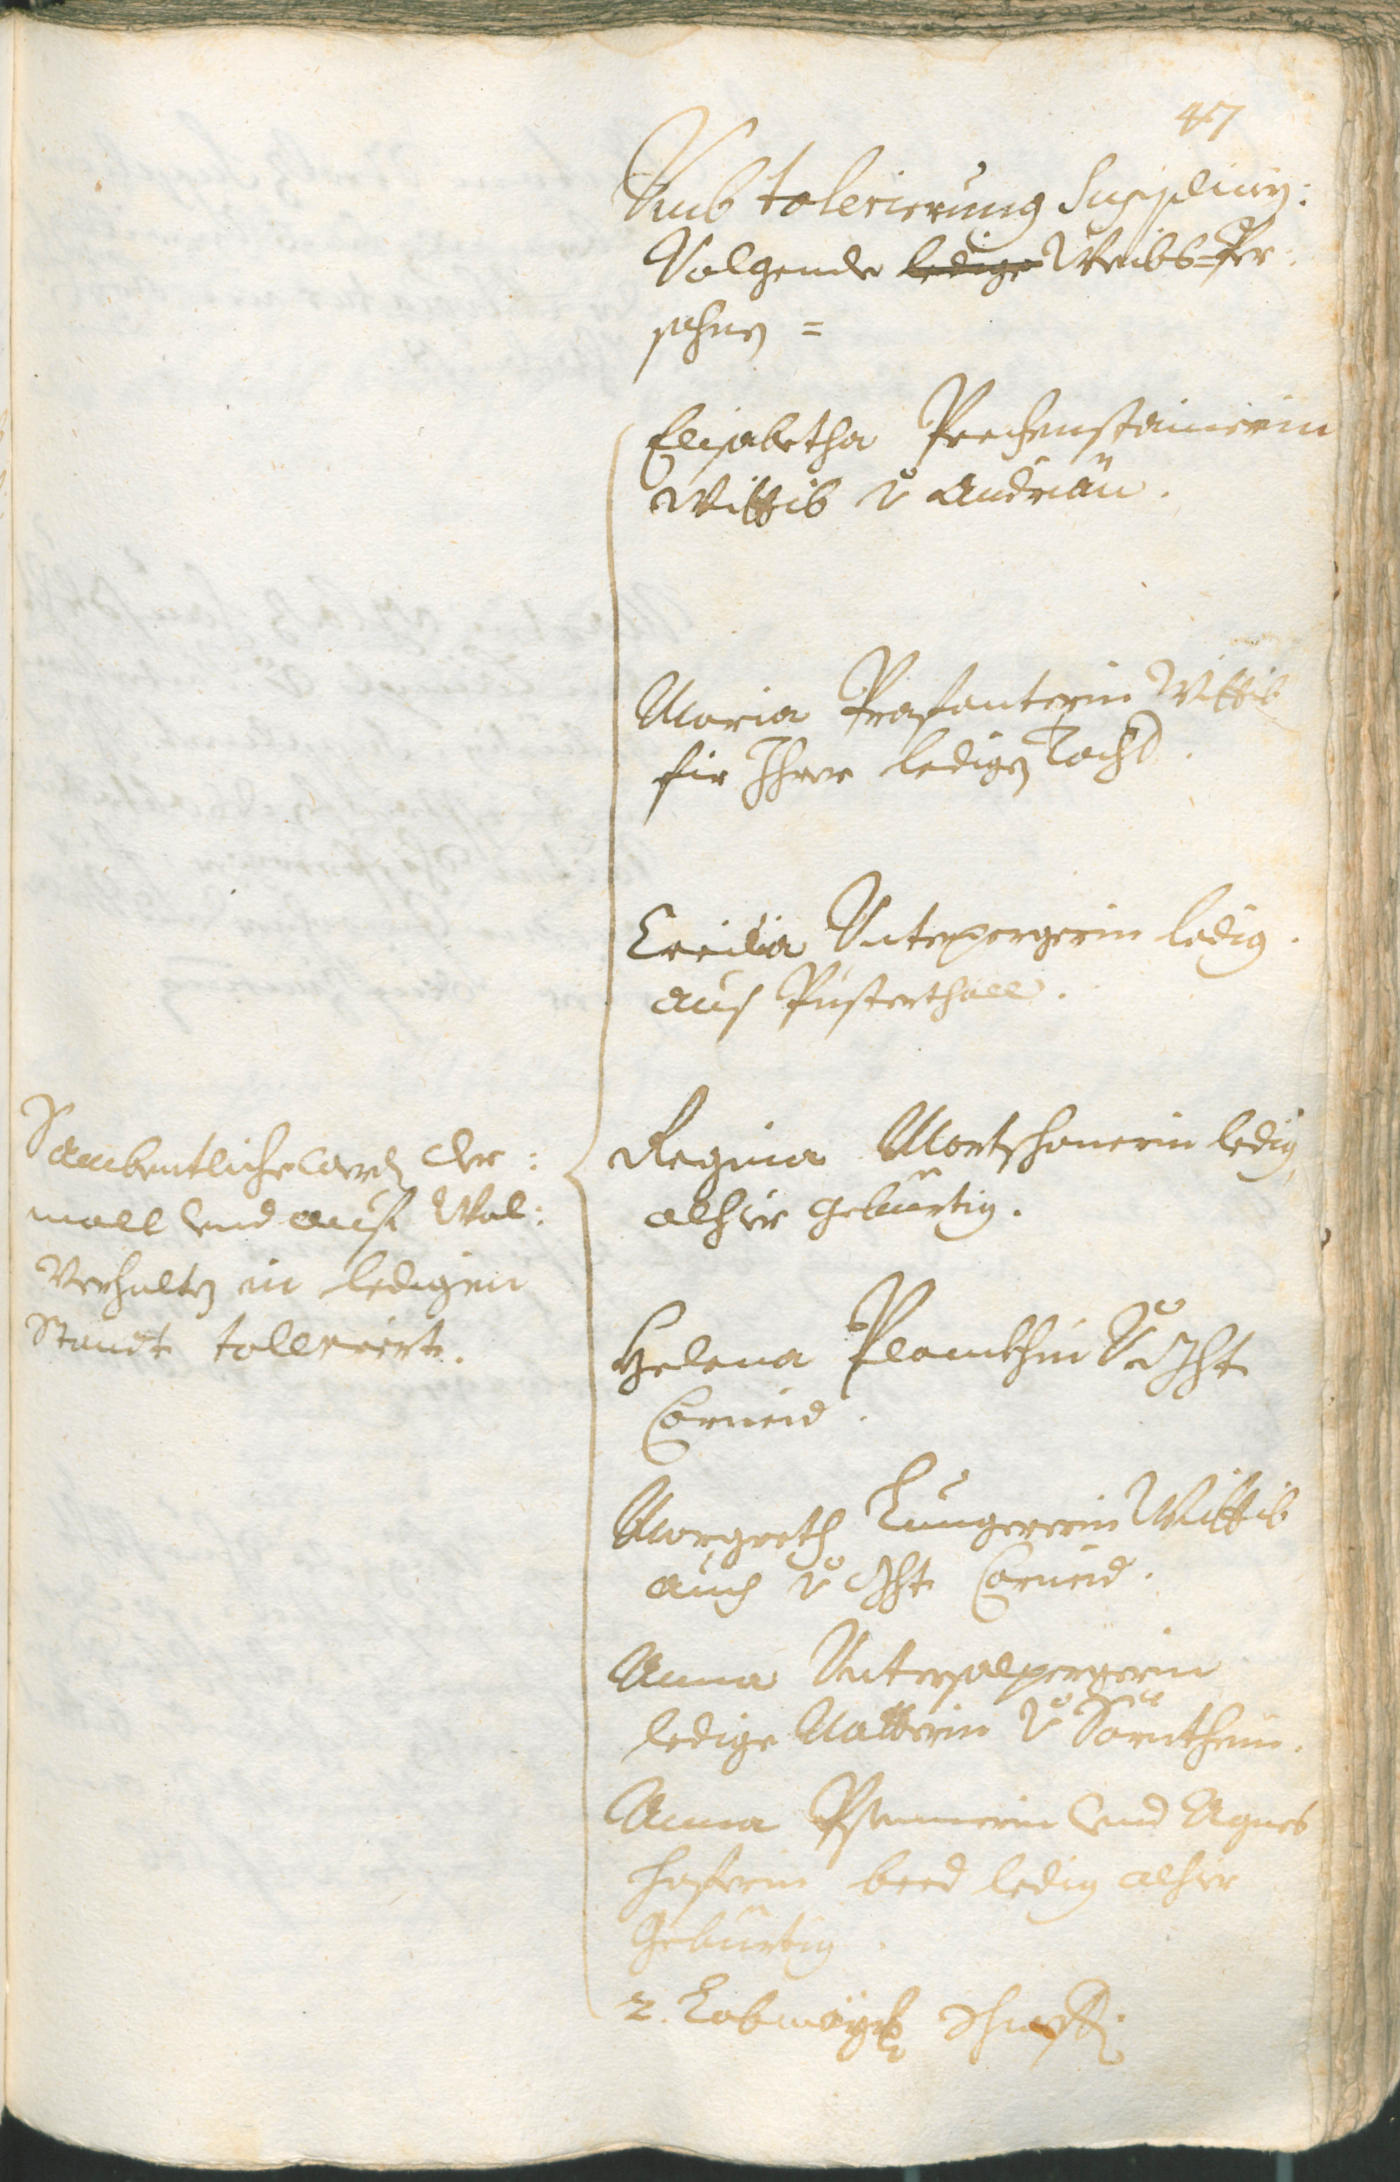 47
Umb tolerierung Suppliciern:
Volgende ledige Weibs-Per
sohnen =
Elisabetha Prechenstainerin
Wittib v. Andrian.
Maria Prasanterin Wittib
für Ihrer ledigen Tocht.
Cecilia Unterpergerin ledig
aus Pusterthall.
Regina Mortschonerin ledig
alhier gebürtig.
Helena Plonckhin V. Ght.
Corneid.
Margreth Lungererin Wittib
auch v. Ght. Corneid.
Anna Untersalpergerin
ledige Natterin v. Särnthein.
Anna Psennerin und Agnes
Hoferin beed ledig alhier
Gebürtig.
2. Labmayr
Sambentliche werden der:
mall und auf Wol:
Verhalten in ledigen
Standt tolleriert.